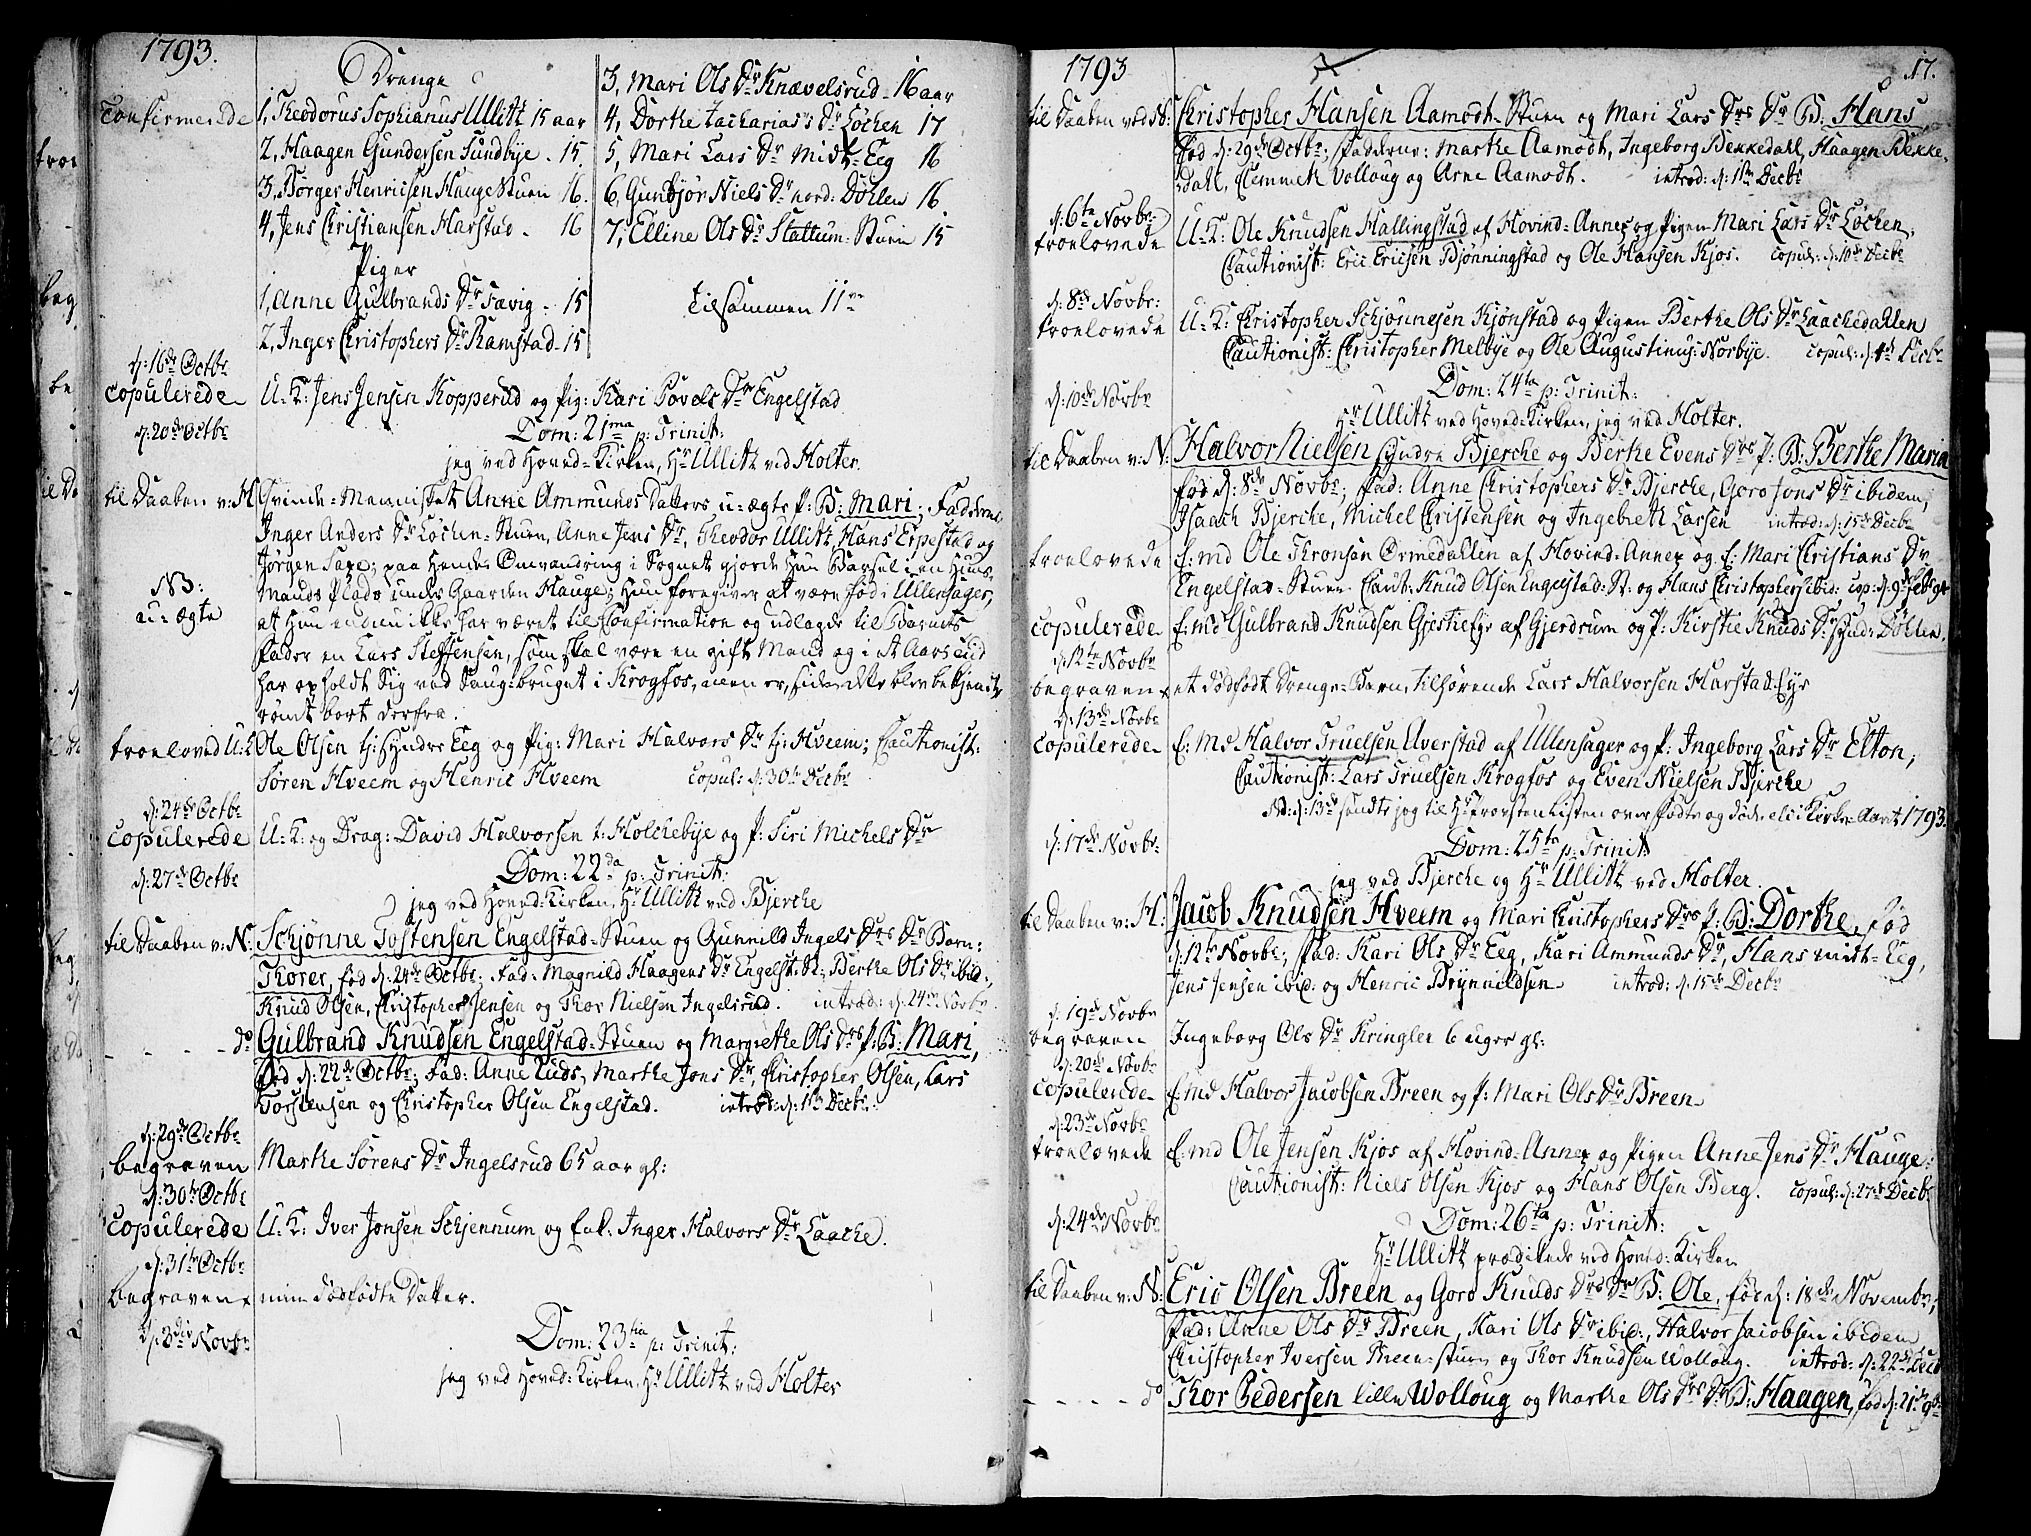 1793.
Drenge
Confirmerede
1, Theodorus Sophianus Ullitz 15 aar
2, Haagen Gundersen Sundbye - 15
3, Børger Henricsen Hauge Stuen 16.
4, Jens Christiansen Harstad - 16
Piger
1, Anne Gulbrands Dr Sævig - 15
2, Inger Christophers Dr Ramstad - 15
3, Mari Ols Dr Knævelsrud - 16 aar
4, Dorthe Zacharias's Dr Løchen 17
5, Mari Lars Dr Midt-Eeg 16
6, Gunbjør Niels Dr nord: Døhlen 16
7, Elline Ols Dr Stattum-Stuen 15
tilsammen 11ve
d: 16de Octbr
copulerede U: K: Jens Jensen Kopperud og Pig: Kari Povels Dr Engelstad
d: 20de Octbr Dom: 21ma p: Trinit:
jeg ved Hoved-Kirken, Hr Ullitz ved Holter.
til Daaben v: H. Qvinde-Mennisket Anne Ammunds Datters u-ægte P: B: Mari; Fadderne
Inger Anders Dr Løchen-Stuen, Anne Jens Dr, Theodor Ullitz, Hans Erpestad og
Jørgen Saxe; paa hendes Omvandring i Sognet gjorde hun Barsel i en Huus-
NB: mands Plads under Gaarden Hauge; hun foregiver at være fød i Ullensager,
u-ægte at hun endnu ikke har været til Confirmation og udlagde til Barnets
Fader en Lars Steffensen, som skal være en gift Mand og i et Aars tid
har opholdt sig ved Saug-bruget i Krogfos, men er, siden dette blev bekjendt,
rømt bort derfra.
troeloved U: K Ole Olsen tj: Syndre Eeg og Pig: Mari Halvors Dr tj: Hveem; Cautionist:
Søren Hveem og Henric Hveem copul: d: 30te Decbr
d: 24de Octbr
copulerede U: K: og Drag: David Halvorsen t: Holchebye og P: Siri Michels Dr
d: 27de Octbr Dom: 22da p: Trinit:
jeg ved Hoved-Kirken, Hr Ullitz ved Bjerche
til Daaben v: N: Schjønne Tostensen Engelstad-Stuen og Gunnild Ingels Drs Dr Barn:
Thorer, fød d: 24de Octbr; Fad: Magnild Haagens Dr Engelst: St:, Berthe Ols Dr ibid:,
Knud Olsen, Christopher Jensen og Thor Nielsen Ingelsrud. introd: d: 24de Novbr
- - - - do Gulbrand Knudsen Engelstad-Stuen og Margrethe Ols Drs P: B: Mari,
fød d: 22de Octbr; Fad: Anne Ruds, Marthe Jons Dr, Christopher Olsen, Lars
Torstensen og Christopher Olsen Engelstad. introd: d: 1ste Decbr:
d: 29de Octbr
begraven Marthe Sørens Dr Ingelsrud 65 aar gl:
d: 30te Octbr
copulerede U: K: Iver Jonsen Schjennum og Enk: Inger Halvors Dr Laache.
d: 31te Octbr
begraven min dødfødte Datter.
d: 3die Novbr Dom: 23tia p: Trinit:
jeg ved Hoved-Kirken, Hr Ullitz ved Holter
1793 17.
til Daaben ved N: Christopher Hansen Aamodt-Stuen og Mari Lars Drs Dr B: Hans
fød d: 29de Octbr; Fadderne: Marthe Aamodt, Ingeborg Bekkedahl, Haagen Bekke-
dahl, Clemmet Volloug og Arne Aamodt. introd: d: 1ste Decbr
d: 6te Novbr:
troelovede U: K: Ole Knudsen Hallingstad af Hovind-Annex og Pigen Mari Lars Dr Løchen,
Cautionist: Eric Ericsen Bjønningstad og Ole Hansen Kjos. copul: d: 10de Decbr
d: 8de Novbr:
troelovede U: K: Christopher Schjønnesen Kjønstad og Pigen Berthe Ols Dr Laachedahlen
Cautionist: Christopher Melbye og Ole Augustinus: Norbye. copul: d: 4de Decbr
d: 10de Novbr Dom: 24ta p: Trinit:
Hr Ullitz ved Hoved-Kirken, jeg ved Holter.
til Daaben v: N: Halvor Nielsen Syndre Bjerche og Berthe Evens Drs P: B: Berthe Maria
fød d: 8de Novbr; Fad: Anne Christophers Dr Bjerche, Goro Jons Dr ibidem,
Isaach Bjerche, Michel Christensen og Ingebreth Larsen introd: d: 15de Decbr
troelovede E: md Ole Thronsen Ormedahlen af Hovind-Annex og E: Mari Christians Dr
Engelstad-Stuen Caut: Knud Olsen Engelstad-St: og Hans Christophers: ibid: cop: d: 9de Febr 94
copulerede E: md Gulbrand Knudsen Gjestiefyr af Gjerdrum og P: Kirstie Knuds Dr Synd: Døhlen.
d: 12te Novbr
begraven et dødfødt Drenge-Barn, tilhørende Lars Halvorsen Harstad-Eye
d: 13de Novbr
copulerede E: Md Halvor Truelsen Averstad af Ullensager og P: Ingeborg Lars Dr Elton;
Cautionist: Lars Truelsen Krogfos og Even Nielsen Bjerche
NB: d: 13de sendte jeg til Hr Provsten Listen over Fødte og Døde etc i Kirke-Aaret 1793.
d: 17de Novbr: Dom: 25ta p: Trinit:
jeg ved Bjerche og Hr Ullitz ved Holter.
til Daaben v: H: Jacob Knudsen Hveem og Mari Christophers Drs P: B: Dorthe, fød
d: 12te Novbr; Fad: Kari Ols Dr Eeg, Kari Ammunds Dr, Hans midt-Eeg,
Jens Jensen ibid: og Henric Brynnildsen introd: d: 15de Decbr
d: 19de Novbr
begraven Ingeborg Ols Dr Kringler 6 uger gl:
d: 20de Novbr
copulerede E: md Halvor Jacobsen Breen og P: Mari Ols Dr Breen
d: 23de Novbr
troelovede E: md Ole Jensen Kjos af Hovind-Annex og Pigen Anne Jens Dr Hauge:
Cautionist: Niels Olsen Kjos og Hans Olsen Berg. copul: d: 27de Decbr
d: 24de Novbr Dom: 26ta p: Trinit:
Hr Ullitz prædikede ved Hoved-Kirken
til Daaben v: N: Eric Olsen Breen og Goro Knuds Drs Dr B: Ole, fød d: 18de Novembr;
Fad: Anne Ols Dr Breen, Kari Ols Dr ibid:, Halvor Jacobsen ibidem
Christopher Iversen Breen-stuen og Thor Knudsen Wolloug. introd: d: 22de Decbr
- - - - do Thor Pedersen lille Wolloug og Marthe Ols Drs Dr B: Haagen, fød d: 21de 9br